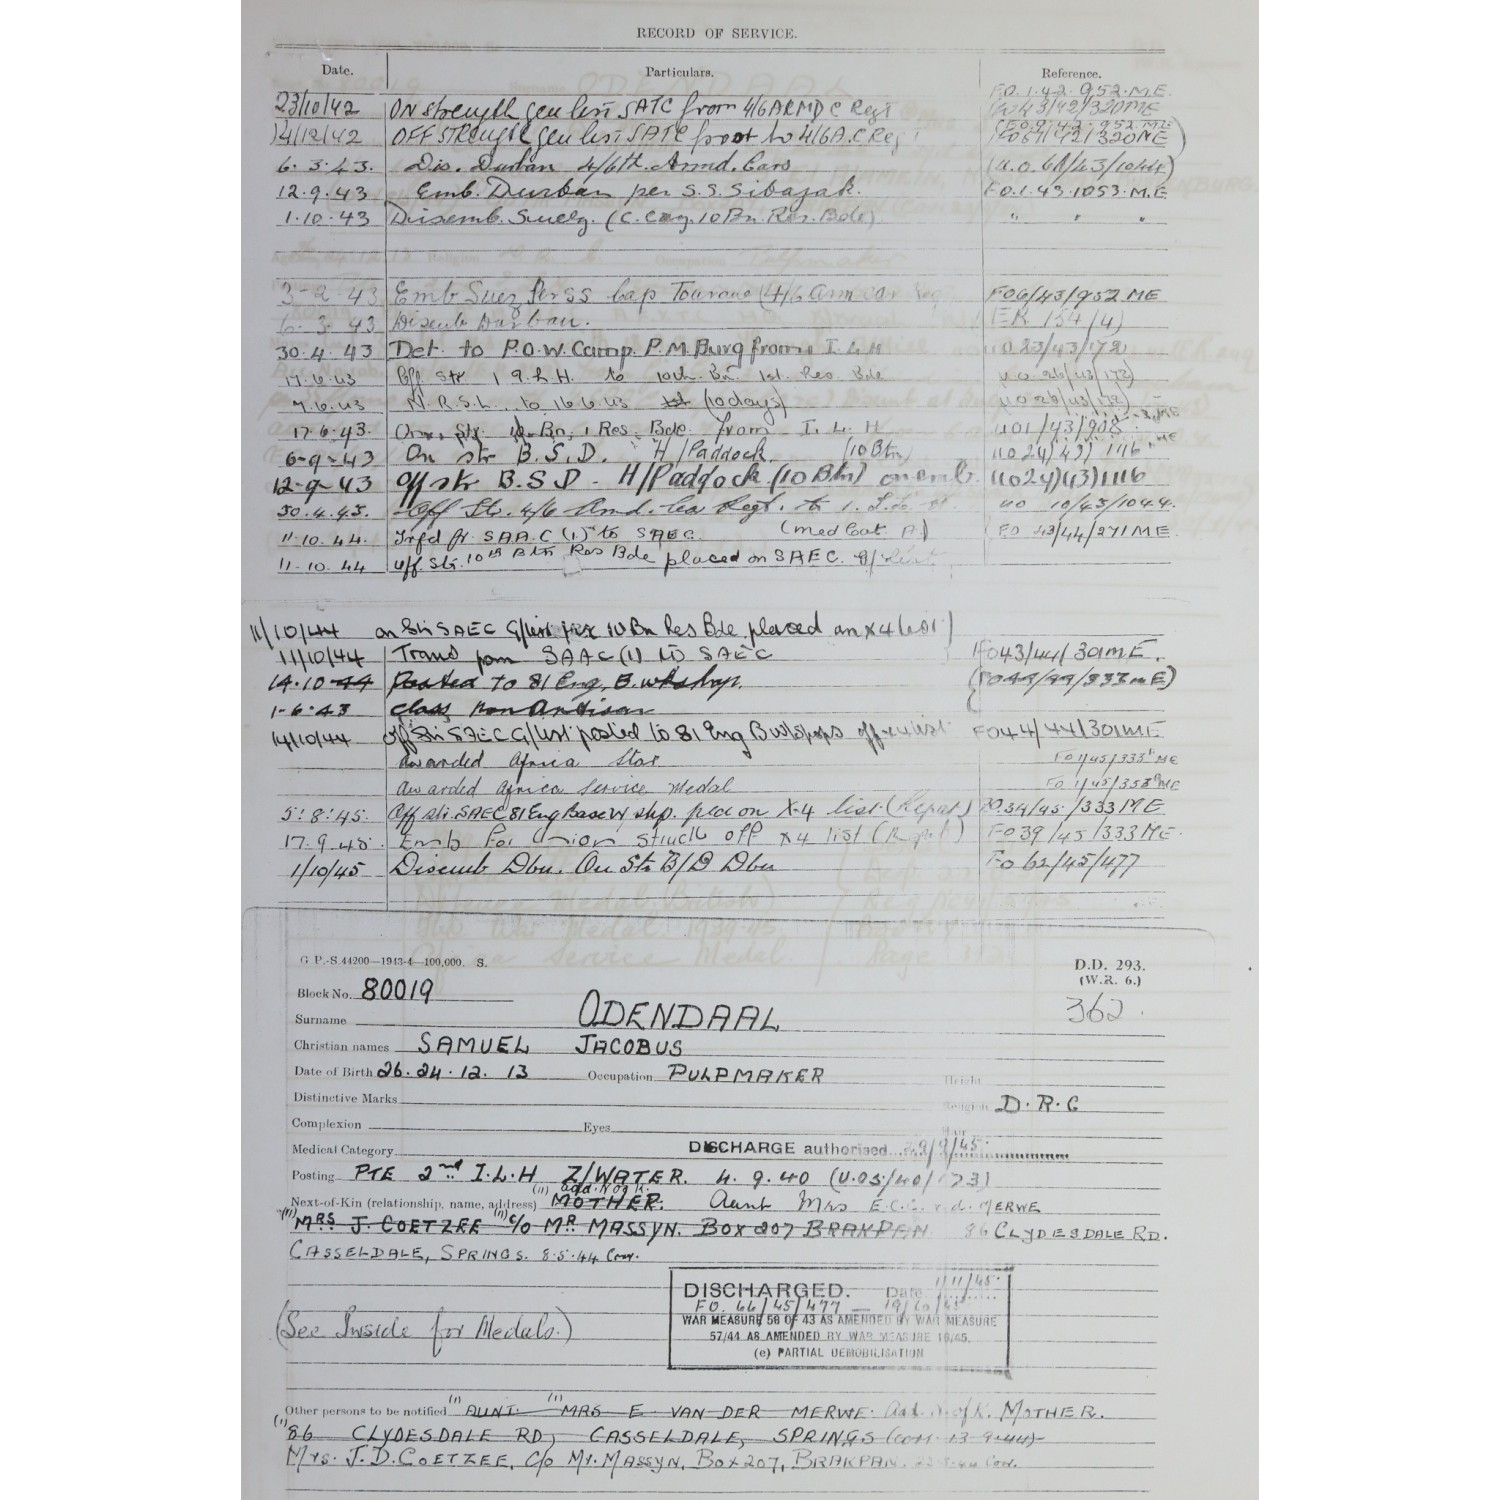 RECORD OF SERVICE.
Date. Particulars. Reference.
F.O.1.42.952.M.E.
23/10/42 ON strength gen list SATC from 4/6 ARMD C Regt
14/12/42 OFF STRENGTH gen list SATC to 4/6 A.C Regt FO51/42/320ME
6.3.43. Dis. Durban 4/6th. Armd. Cars (U.O.61/43/1044)
12.9.43 Emb. Durban per S.S. Sibajak. F.O.1.43.1053.M.E
1.10.43 Disemb. Suez. (C. Coy. 10 Bn. Res. Bde) " " "
3-2-43 Emb Suez Per SS Cap Tourane (4/6 Arm Car Reg FO6/43/952 ME
6.3.43 Disemb Durban. (ER 154/4)
30.4.43 Det. to P.O.W. Camp. P.M. Burg from I L H UO 23/43/172
17.6.43 Off Str 1 I.L.H. to 10th Bn. 1st. Res Bde U.O 26/43/172)
7.6.43 N.R.S.L. to 16.6.43 (10 days) UO 26/43/172)
17.6.43. On Str. 10 Bn, 1 Res. Bde. from I. L. H UO1/43/908
6-9-43 On str B.S.D. H/Paddock. (10 Btn) (1024)(43) 1116
12-9-43 Off str B.S.D - H/Paddock (10 Btn) on emb. (1024)(43)1116
30.4.43. Off Str. 4/6 Amd. Car Regt. to 1. I.L.H. UO 10/43/1044.
11.10.44. Trfd fr. SAAC (1) to SAEC. (Med Cat A) FO 43/44/271ME.
11.10.44 Off. Str. 10th Btn Res Bde placed on SAEC. G/List
11/10/44 on Str SAEC G/List fr 10 Bn Res Bde placed on X4 list
11/10/44 Trans from SAAC (1) to SAEC FO43/44/301ME.
14.10.44 Posted to 81 Eng. B. Wkshop. (FO44/44/333ME)
1-6.43 Class Non Artisan
14/10/44 Off Str SAEC G/List posted to 81 Eng B Wkshops off x4 list FO44/44/301ME
Awarded Africa Star FO 1/45/333 ME
Awarded Africa Service Medal FO 1/45/333 ME
5:8:45. Off str. SAEC 81 Eng Base W/shp. place on X-4 list (Repat) FO.34/45/333ME
17.9.45. Emb For Union struck off x4 list (Repat) FO39/45/333ME.
1/10/45 Disemb Dbn. On Str B/D Dbn FO 62/45/477
G P.-S.44200—1943-4—100,000. S. D.D. 293.
(W.R. 6.)
Block No. 80019 362
Surname ODENDAAL
Christian names SAMUEL JACOBUS
Date of Birth 26. 24.12.13 Occupation PULPMAKER Height
Distinctive Marks Religion D.R.C
Complexion Eyes Hair
Medical Category DISCHARGE authorised 29/9/45
Posting PTE 2nd I.L.H Z/WATER. 4.9.40 (U.O3/40/173)
(11) add. N of K.
Next-of-Kin (relationship, name, address) MOTHER: Aunt Mrs E.C.C. v.d. MERWE
(11) MRS J. COETZEE (11) C/O MR MASSYN. BOX 207 BRAKPAN 86 CLYDESDALE RD.
CASSELDALE, SPRINGS. 8.5.44 Cor.
DISCHARGED. Date 1/11/45
FO. 66/45/477 — 19/10/45
WAR MEASURE 58 OF 43 AS AMENDED BY WAR MEASURE
57/44 AS AMENDED BY WAR MEASURE 16/45.
(e) PARTIAL DEMOBILISATION
(See Inside for Medals.)
Other persons to be notified (1) AUNT. (1) MRS E VAN DER MERWE. Add. N. of K. MOTHER.
(1) 86 CLYDESDALE RD, CASSELDALE, SPRINGS (corr. 13-9-44)
Mrs. J.D. COETZEE, C/o Mr. MASSYN, Box 207, BRAKPAN.